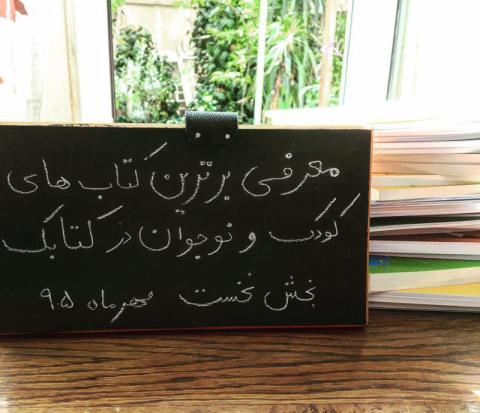 معرفی برترین کتاب های
کودک و نوجوان در کتابک
بخش نخست مهرماه ۹۰۵